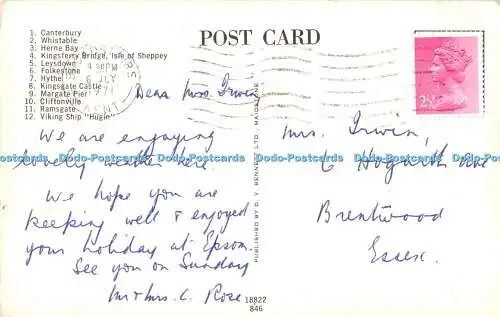 1. Canterbury
2. Whistable
3. Herne Bay
4. Kingsferry Bridge, Isle of Sheppey
5. Leysdown
6. Folkestone
7. Hythe
8. Kingsgate Castle
9. Margate Pier
10. Cliftonville
11. Ramsgate
12. Viking Ship "Hugin"
POST CARD
4 PM
6 JLY
1971
KENT
2½
Dear Mrs. Irwin
We are enjoying
lovely weather here.
We hope you are
keeping well & enjoyed
your holiday at Epsom.
See you on Sunday
Mr & Mrs. C. Rose
PUBLISHED BY D. V. BENNETT LTD., MAIDSTONE
Mrs. Irwin,
6 Hogarth Ave
Brentwood
Essex.
18822
846
Dodo-Postcards Dodo-Postcards Dodo-Postcards Dodo-Postcards Dodo-Postcards